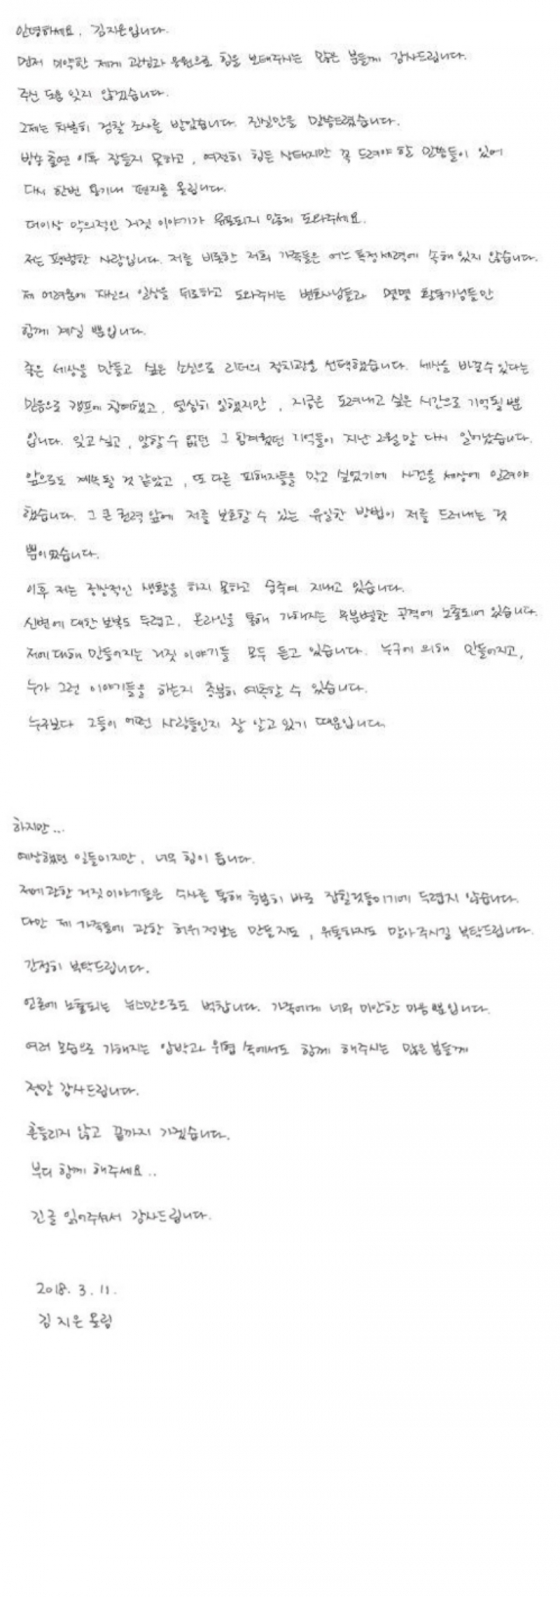 안녕하세요, 김지은입니다.
먼저 미약한 제게 관심과 응원으로 힘을 보태주시는 많은 분들께 감사드립니다.
주신 도움 잊지 않겠습니다.
그제는 차분히 검찰 조사를 받았습니다. 진실만을 말씀드렸습니다.
방송 출연 이후 잠들지 못하고, 여전히 힘든 상태지만 꼭 드려야 할 말씀들이 있어
다시 한번 용기내 편지를 올립니다.
더이상 악의적인 거짓 이야기가 유포되지 않게 도와주세요.
저는 평범한 사람입니다. 저를 비롯한 저희 가족들은 어느 특정 세력에 속해 있지 않습니다.
제 어려움에 자신의 일상을 뒤로하고 도와주시는 변호사님들과 몇몇 활동가님들만
함께 계실 뿐입니다.
좋은 세상을 만들고 싶은 소신으로 리더의 정치관을 선택했습니다. 세상을 바꿀 수 있다는
믿음으로 캠프에 참여했고, 열심히 일했지만, 지금은 도려내고 싶은 시간으로 기억될 뿐
입니다. 잊고 싶고, 말할 수 없던 그 힘겨웠던 기억들이 지난 2월 말 다시 일어났습니다.
앞으로도 계속될 것 같았고, 또 다른 피해자들을 막고 싶었기에 사건을 세상에 알려야
했습니다. 그 큰 권력 앞에 저를 보호할 수 있는 유일한 방법이 저를 드러내는 것
뿐이었습니다.
이후 저는 정상적인 생활을 하지 못하고 숨죽여 지내고 있습니다.
신변에 대한 보복도 두렵고, 온라인을 통해 가해지는 무분별한 공격에 노출되어 있습니다.
저에 대해 만들어지는 거짓 이야기들 모두 듣고 있습니다. 누구에 의해 만들어지고,
누가 그런 이야기들을 하는지 충분히 예측할 수 있습니다.
누구보다 그들이 어떤 사람들인지 잘 알고 있기 때문입니다.
하지만...
예상했던 일들이지만, 너무 힘이 듭니다.
저에 관한 거짓 이야기들은 수사를 통해 충분히 바로 잡힐것들이기에 두렵지 않습니다.
다만 제 가족들에 관한 허위 정보는 만들지도, 유통하지도 말아주시길 부탁드립니다.
간절히 부탁드립니다.
언론에 노출되는 뉴스만으로도 벅찹니다. 가족에게 너무 미안한 마음 뿐입니다.
여러 모습으로 가해지는 압박과 위협 속에서도 함께 해주시는 많은 분들께
정말 감사드립니다.
흔들리지 않고 끝까지 가겠습니다.
부디 함께 해주세요..
긴글 읽어주셔서 감사드립니다.
2018. 3. 11.
김지은 올림